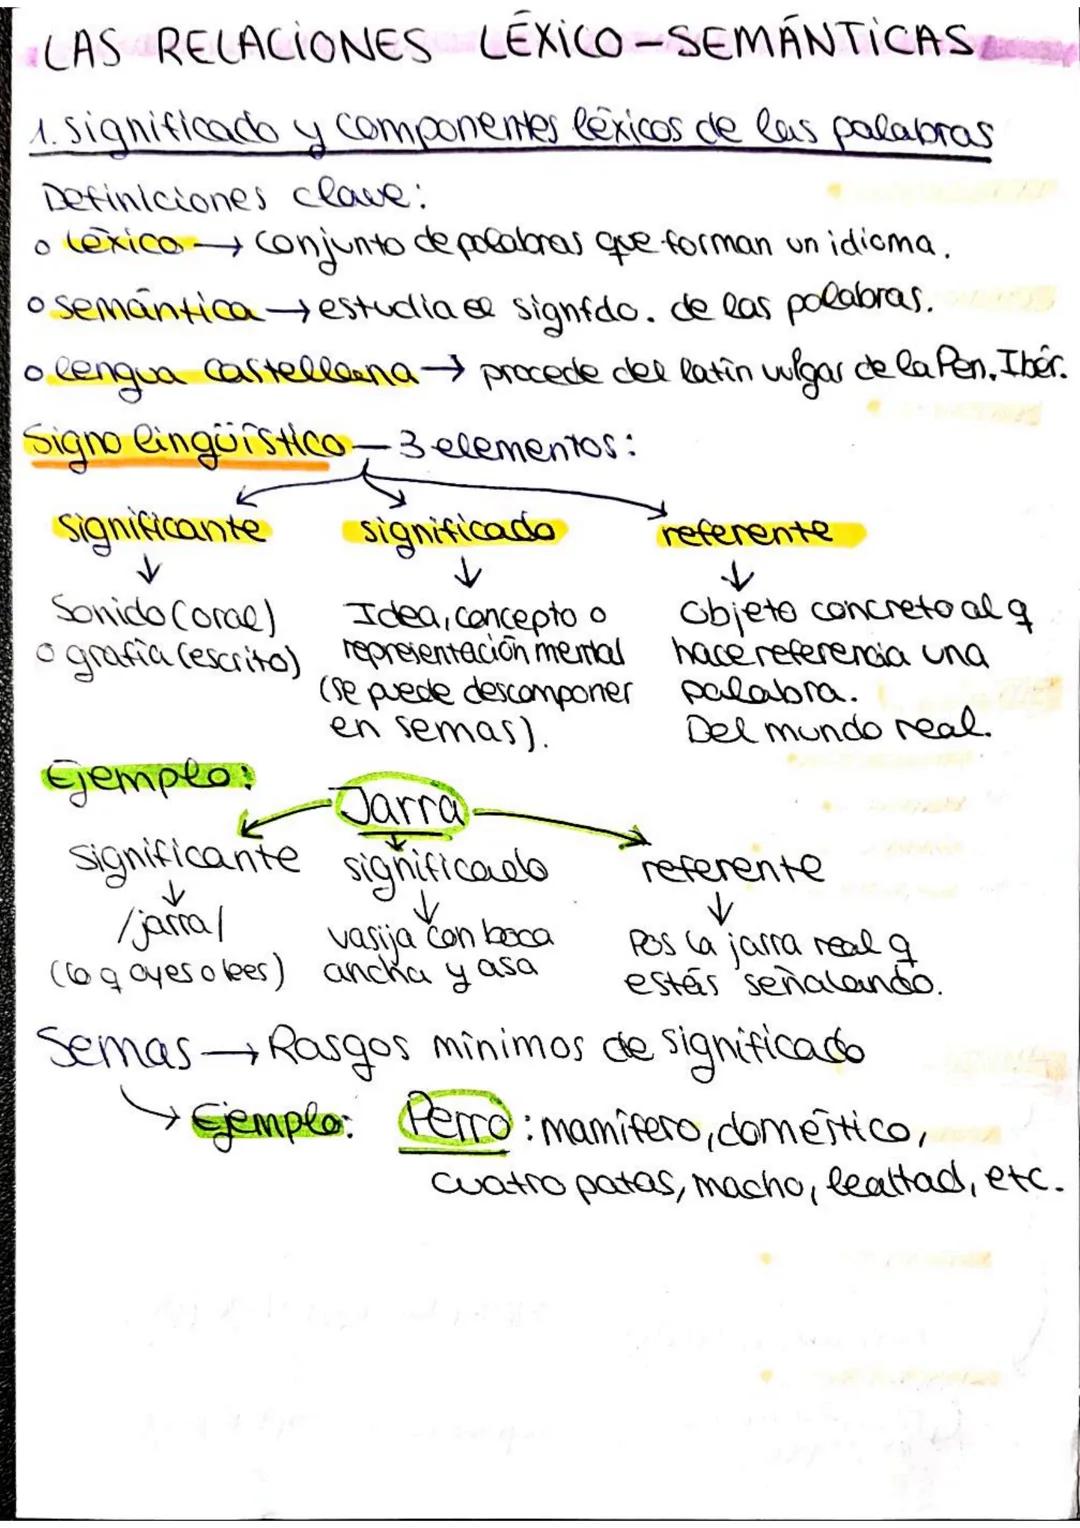 LAS RELACIONES LÉXICO-SEMÁNTICAS
1. significado y componentes léxicos de las palabras
Definiciones clave:
o léxico → conjunto de palabras que forman un idioma.
o semántica → estudia el signfdo. de las palabras.
o lengua castellana → procede del latín vulgar de la Pen. Ibér.
Signo lingüístico — 3 elementos:
significante significado referente
↓ ↓ ↓
Sonido (oral) Idea, concepto o Objeto concreto al q
o grafía (escrito) representación mental hace referencia una
(se puede descomponer palabra.
en semas). Del mundo real.
Ejemplo:
Jarra
significante significado referente
↓ ↓ ↓
/jarra/ vasija con boca Pos la jarra real q
(lo q oyes o lees) ancha y asa estás señalando.
Semas → Rasgos mínimos de significado
→ Ejemplo: Perro: mamífero, doméstico,
cuatro patas, macho, lealtad, etc.